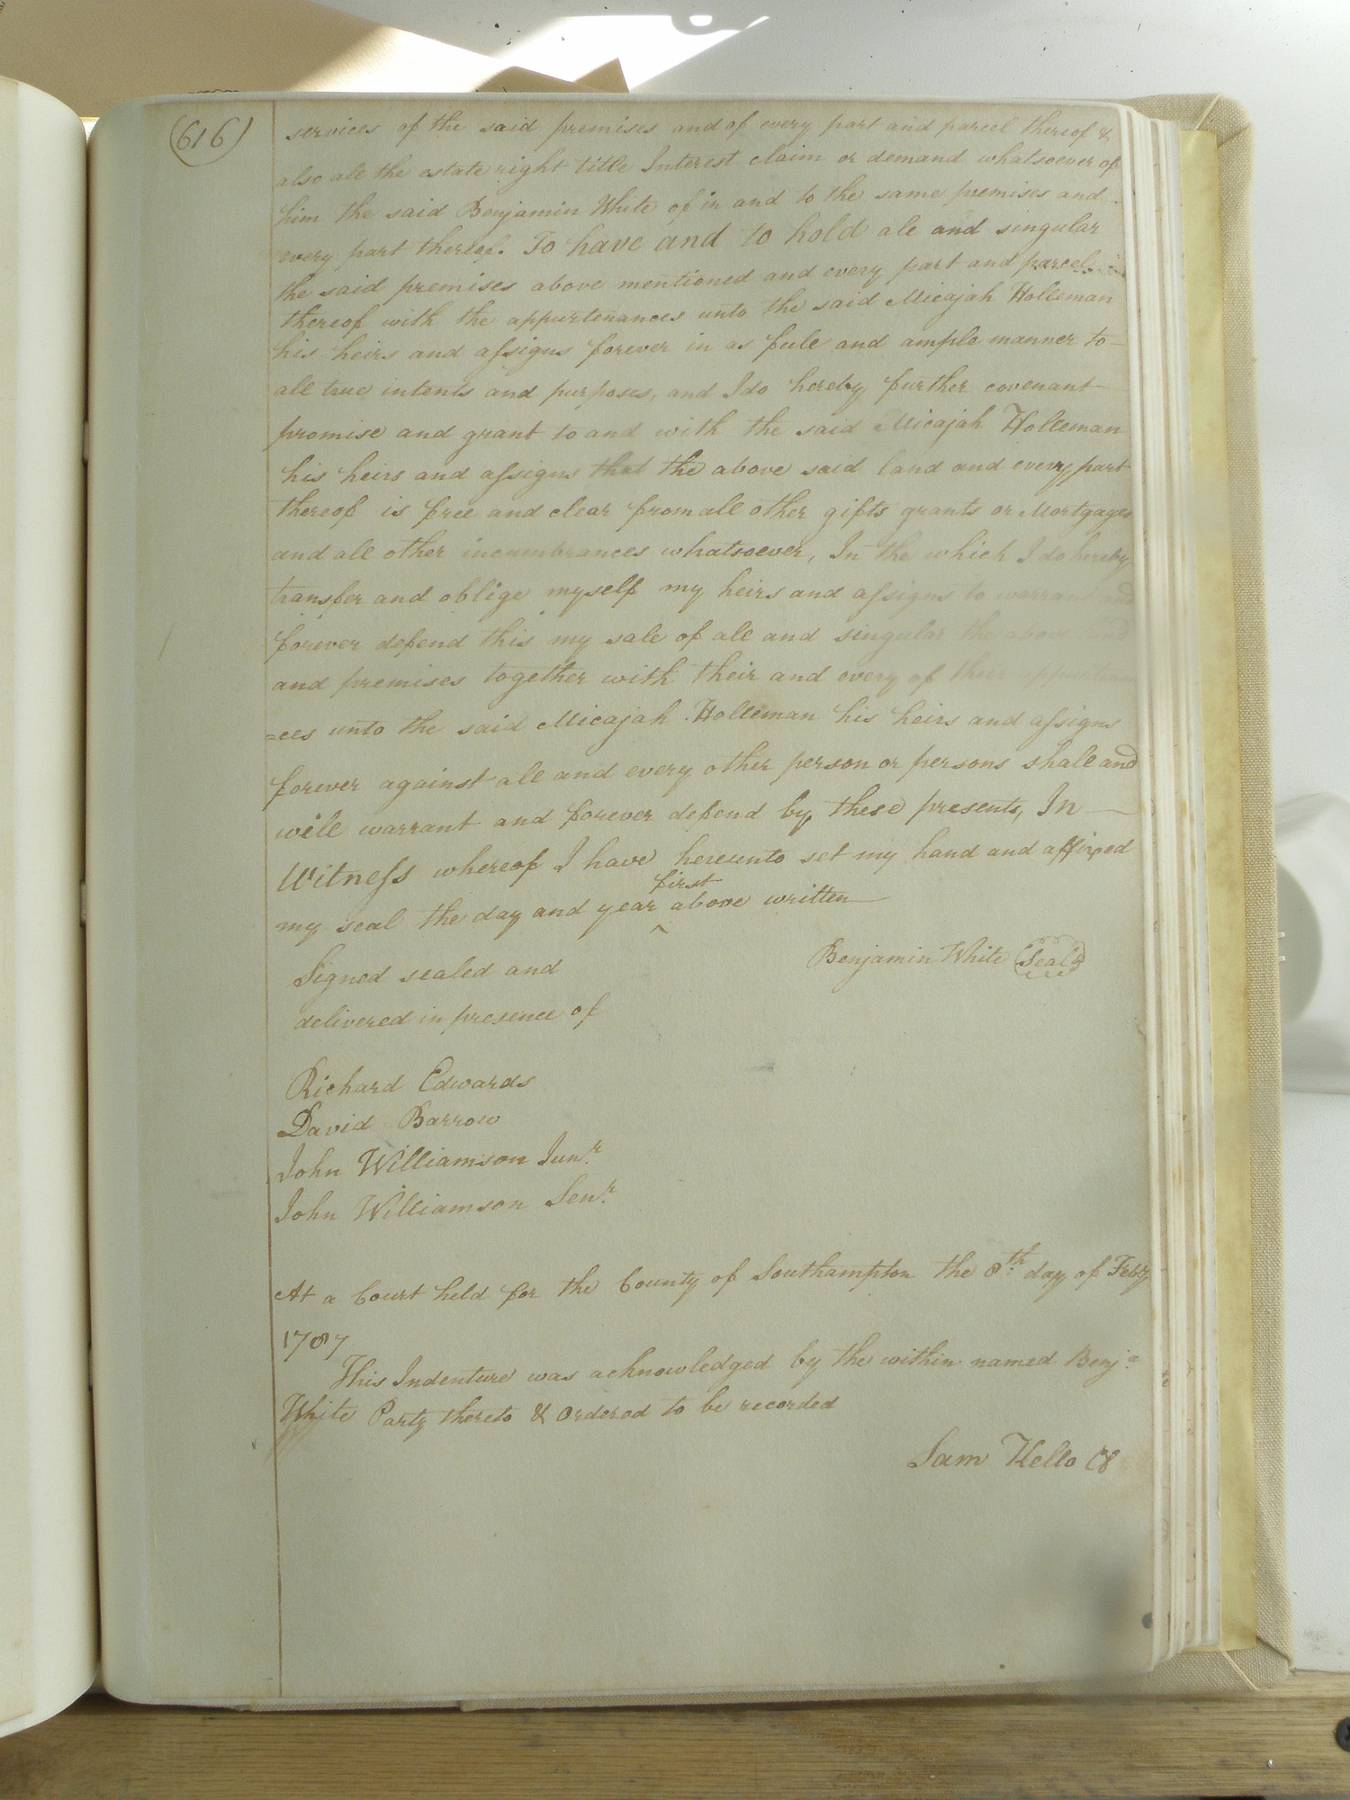 (616)
services of the said premises and of every part and parcel thereof &
also all the estate right title Interest claim or demand whatsoever of
him the said Benjamin White of in and to the same premises and
every part thereof. To have and to hold all and singular
the said premises above mentioned and every part and parcel
thereof with the appurtenances unto the said Micajah Holleman
his heirs and assigns forever in as full and ample manner to
all true intents and purposes, and I do hereby further covenant
promise and grant to and with the said Micajah Holleman
his heirs and assigns that the above said land and every part
thereof is free and clear from all other gifts grants or Mortgages
and all other incumbrances whatsoever, In the which I do hereby
transfer and oblige myself my heirs and assigns to warrant and
forever defend this my sale of all and singular the above
and premises together with their and every of their appurtenan
=ces unto the said Micajah Holleman his heirs and assigns
forever against all and every other person or persons shall and
will warrant and forever defend by these presents, In
Witness whereof I have hereunto set my hand and affixed
my seal the day and year ^first above written
Benjamin White (Seal)
Signed sealed and
delivered in presence of
Richard Edwards
David Barrow
John Williamson Junr.
John Williamson Senr.
At a Court held for the County of Southampton the 8th. day of Feby
1787
This Indenture was acknowledged by the within named Benja.
White Party thereto & ordered to be recorded
Sam Kello C8